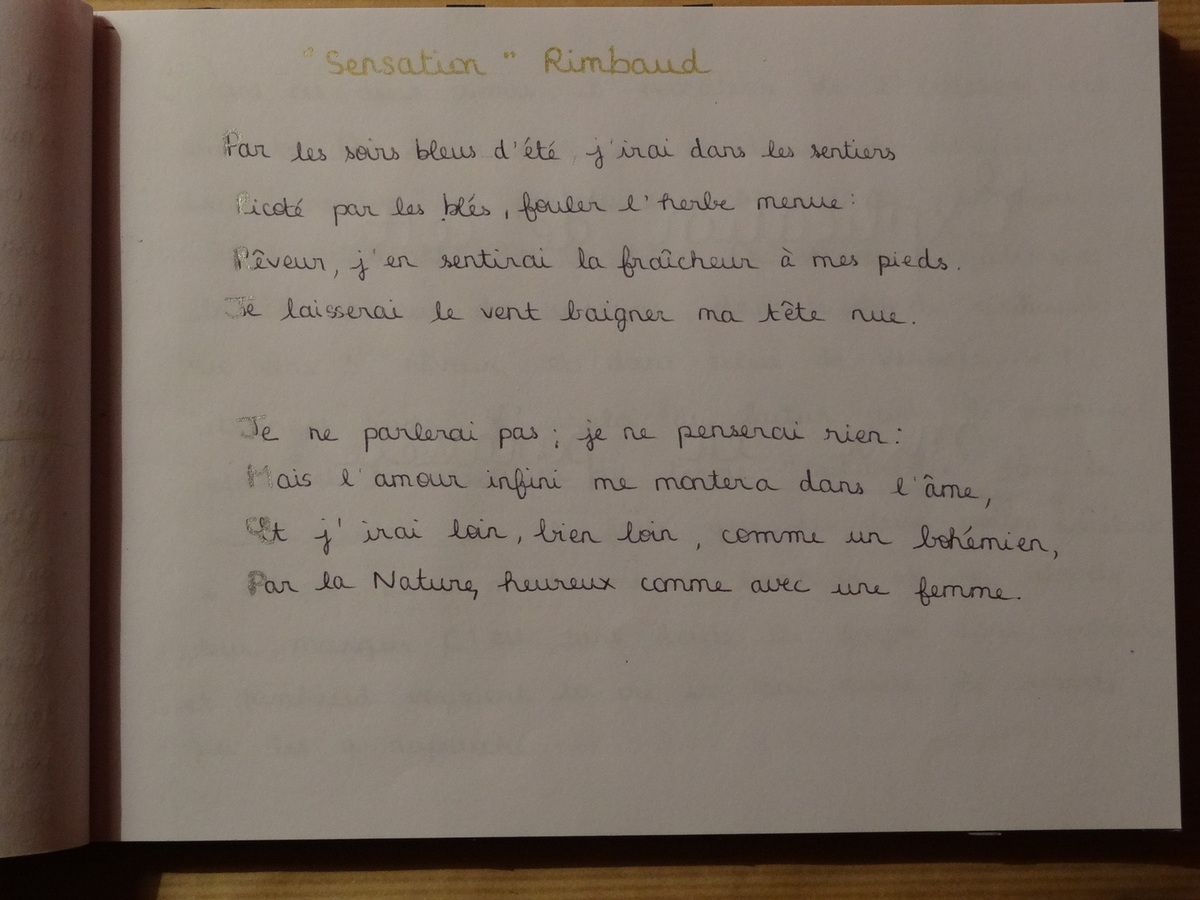 "Sensation" Rimbaud
Par les soirs bleus d'été, j'irai dans les sentiers
Picoté par les blés, fouler l'herbe menue:
Rêveur, j'en sentirai la fraîcheur à mes pieds.
Je laisserai le vent baigner ma tête nue.
Je ne parlerai pas; je ne penserai rien:
Mais l'amour infini me montera dans l'âme,
Et j'irai loin, bien loin, comme un bohémien,
Par la Nature, heureux comme avec une femme.